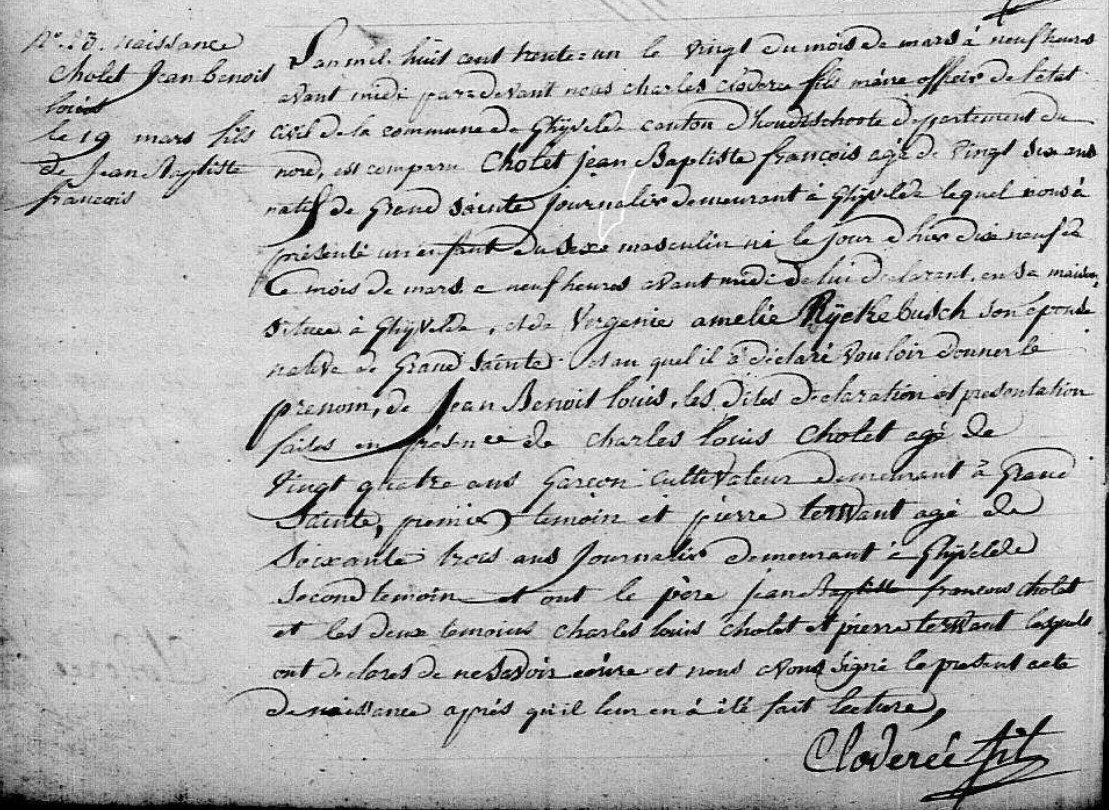 N°. 23. naissance
Cholet Jean benoit
louis
le 19 mars fils
de Jean Baptiste
francois
L'an mil huit cent trente=un le vingt du mois de mars à neuf heures
avant midi pardevant nous charles Cloderée fils maire officier de l'état
civil de la commune de Ghÿvelde canton d'hondschoote departement du
nord, est comparu Cholet jean Baptiste francois agé de vingt six ans
natif de Grand Sainte Journalier demeurant à Ghÿvelde lequel nous à
présenté un enfant du sexe masculin né le jour d'hier dix neuf de
Ce mois de mars a neuf heures avant midi de lui declarant, en sa maison,
située à Ghÿvelde, et de Vergenie amelie Rÿckebusch son épouse
native de Grand Sainte et au quel il à déclaré vouloir donner le
prenom, de Jean Benoit louis, les dites declaration et presentation
faites en présence de charles louis Cholet agé de
vingt quatre ans garcon cultivateur demeurant à Grand
Sainte, premier temoin et pierre terwant agé de
Soixante trois ans Journalier demeurant à Ghÿvelde
Second temoin et ont le père jean Baptiste francois cholet
et les deux temoins charles louis cholet et pierre terwant lesquels
ont declares de ne savoir ecrire et nous avons signé le present acte
de naissance après qu'il leur en à été fait lecture,
Cloderée fils